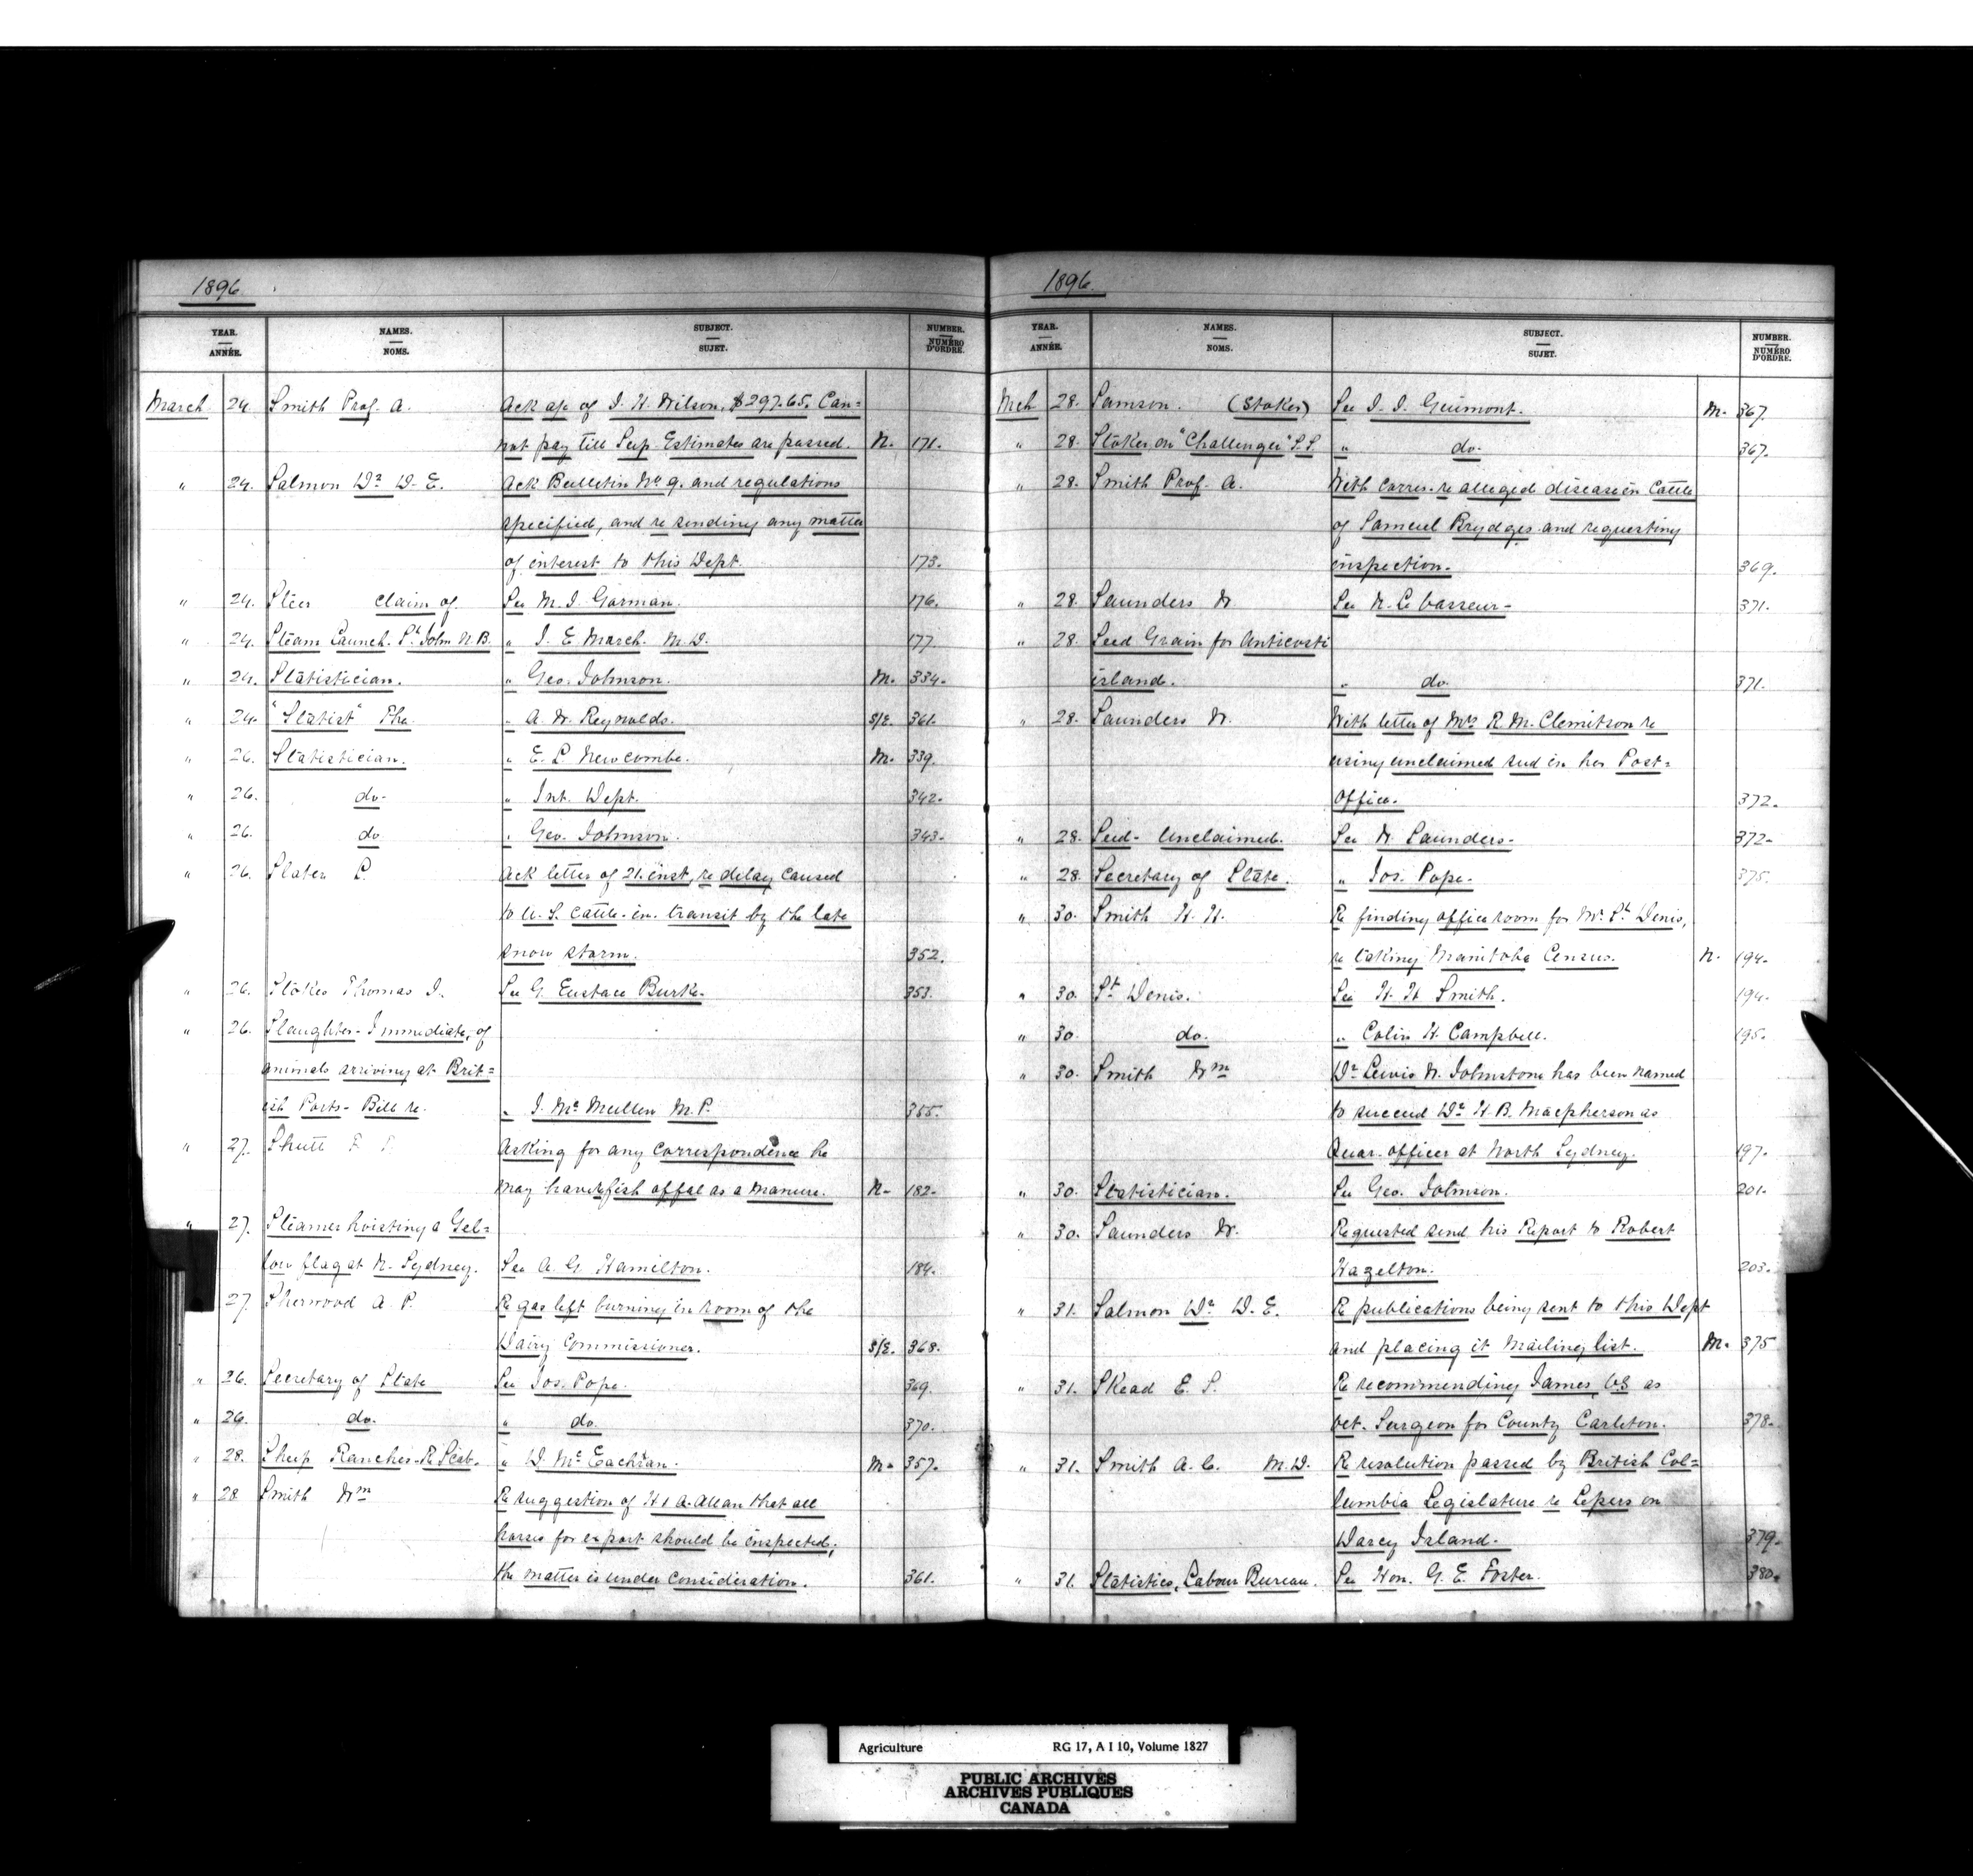 1896
YEAR. ANNÉE. NAMES. NOMS. SUBJECT. SUJET. NUMBER. NUMÉRO D'ORDRE.
March 24. Smith Prof. A. Ack a/c of J. H. Wilson, $297.65. Can=
not pay till Sup. Estimates are passed. N. 171.
" 24. Salmon Dr D. E. Ack Bulletin No 9. and regulations
specified, and re sending any matter
of interest to this Dept. 173.
" 24. Steer claim of. See M. J. Gorman. 176.
" 24. Steam Launch. St John N.B. " J. E. March. M.D. 177.
" 24. Statistician. " Geo. Johnson. M. 334.
" 24. "Statist" The " A. W. Reynolds. S/E. 361.
" 26. Statistician. " E. L. Newcombe. M. 339.
" 26. do. " Int. Dept. 342.
" 26. do " Geo. Johnson. 343.
" 26. Slater P. Ack letter of 21. inst, re delay caused
to U. S. cattle in transit by the late
snow storm. 352.
" 26. Stokes Thomas J. See G. Eustace Burke. 353.
" 26. Slaughter - Immediate, of
animals arriving at Brit=
ish Ports - Bill re. " J. McMullen M.P. 355.
" 27. Shutt F. T. Asking for any correspondence he
may have re fish offal as a manure. N. 182.
" 27. Steamer hoisting a Yel=
low flag at N. Sydney. See A. G. Hamilton. 184.
27. Sherwood A. P. Re gas left burning in room of the
Dairy Commissioner. S/E. 368.
" 26. Secretary of State See Jos. Pope. 369.
" 26. do. " do. 370.
" 28. Sheep Ranches - Re Scab. " D. McEachran. M. 357.
" 28 Smith Wm Re suggestion of H & A. Allan that all
horses for export should be inspected;
the matter is under consideration. 361.
1896.
YEAR. ANNÉE. NAMES. NOMS. SUBJECT. SUJET. NUMBER. NUMÉRO D'ORDRE.
Mch 28. Samson. (Stoker) See J. J. Guimont. M. 367.
" 28. Stoker on "Challenger" S.S. " do. 367.
" 28. Smith Prof. A. With corres. re alleged disease in Cattle
of Samuel Brydges and requesting
inspection. 369.
" 28. Saunders W See N. Le Vasseur - 371.
" 28. Seed Grain for Anticosti
island. " do 371.
" 28. Saunders W. With letter of Mrs R. M. Clemitson re
using unclaimed seed in her Post=
office. 372.
" 28. Seed - Unclaimed. See W Saunders - 372.
" 28. Secretary of State. " Jos. Pope. 375.
" 30. Smith H. H. Re finding office room for Mr St Denis,
re taking Manitoba Census. N. 194.
" 30. St Denis. See H. H Smith. 194.
" 30. do. " Colin H. Campbell. 195.
" 30. Smith Wm Dr Lewis W. Johnstone has been named
to succeed Dr H. B. Macpherson as
Quar. officer at North Sydney. 197.
" 30. Statistician. See Geo. Johnson. 201.
" 30. Saunders W. Requested send his Report to Robert
Hazelton. 203.
" 31. Salmon Dr D. E. Re publications being sent to this Dept
and placing it mailing list. M. 375
" 31. Skead E. S. Re recommending James, V.S. as
Vet. Surgeon for County Carleton. 378.
" 31. Smith A. C. M.D. Re resolution passed by British Col=
lumbia Legislature re Lepers on
Darcy Island. 379.
" 31. Statistics, Labour Bureau. See Hon. G. E. Foster. 380.
Agriculture RG 17, A I 10, Volume 1827
PUBLIC ARCHIVES
ARCHIVES PUBLIQUES
CANADA